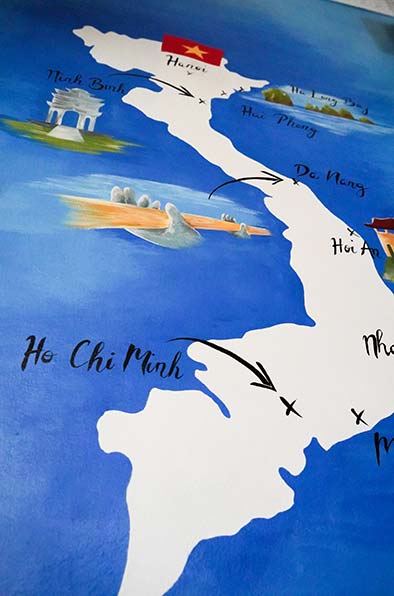 Hanoi
Ninh Binh
Ha Long Bay
Hai Phong
Da Nang
Hoi An
Ho Chi Minh